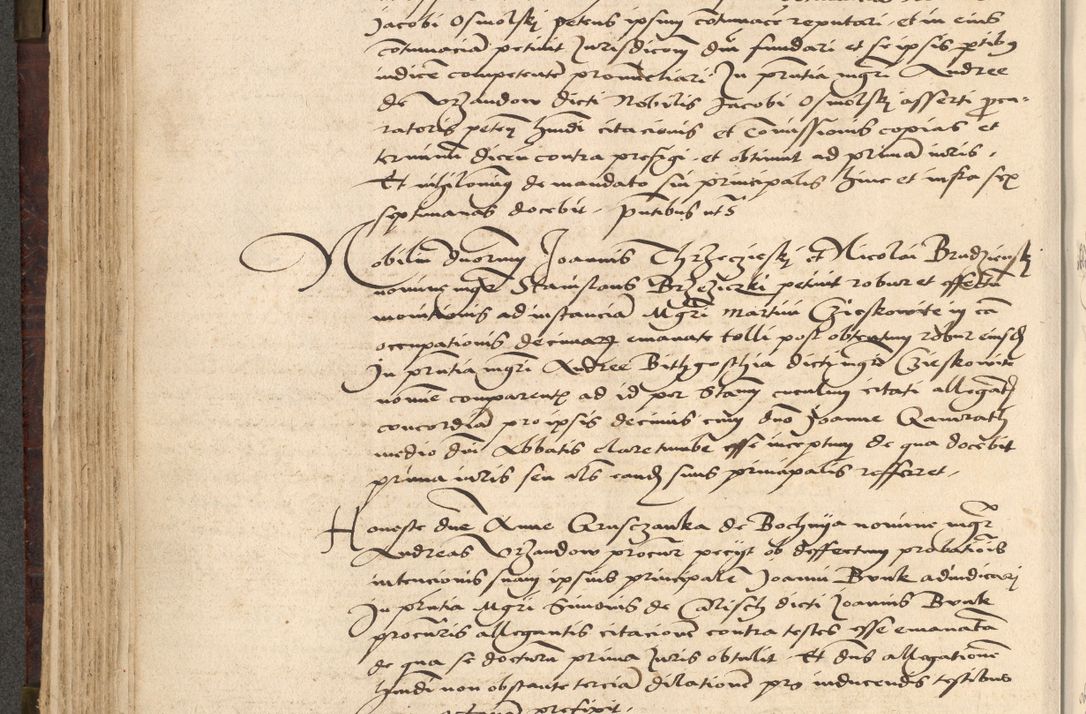 Jacobi Osmolskj petens ipsum cotumace reputari et in eius
cotumacia petiuit Jurisdicom dni fundari et se ipsis ptibus
iudice competente pronuctiari In pntia mgri Andree
de Vrzandow dicti Nobilis Jacobi Osmolskj asserti pcu-
ratoris peten hmdi citacionis et comissionis copias et
terminum dicen contra prefigi et obtinuit ad prima iuris
Et nihilominus de mandato sui principalis hinc et infra sex
septimanas docebit pntibus uts
Nobiliu duorum Joannis Thrzeczieskj et Nicolai Brudzienskj
nomine mgr Stanislaus Brzeziczkj petiuit robur et effectu
monitionis ad instancia Mgri Martini Czieskowite in ca
occupationis decimar emanate tolli post obtentum robur eiusd
In pntia mgri Andree Bithgosthia dictj mgri Czieskowite
nomine comparent ad id per citati allegatis
concordia pro ipsis decimis cum dno Joanne Qamrath
medio dni Abbatis claretumbe esse inceptum de qua docebit
prima iuris seu als eand suus principalis refferet
Honeste dne Anne Grusczanka de Bochnya nomine mgr
Andreas Vrzandow procur petijt ob deffectum probationis
intencionis suam ipsius principale Joanni Bunk adiudicarj
In pntia Mgri Simonis de Calisch dicti Joannis Bunk
procuris allegantis citacione contra testes esse emanata
de qua se doctura prima Juris obtulit Et dns allegatione
hmdi non obstante tercia dilatione pro inducendis testibus
prefixit